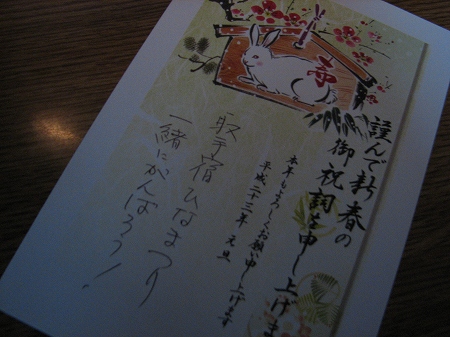 謹んで新春の
御祝詞を申し上げます
本年もよろしくお願い申し上げます
平成二十三年 元旦
取手宿ひなまつり
一緒にがんばろう!